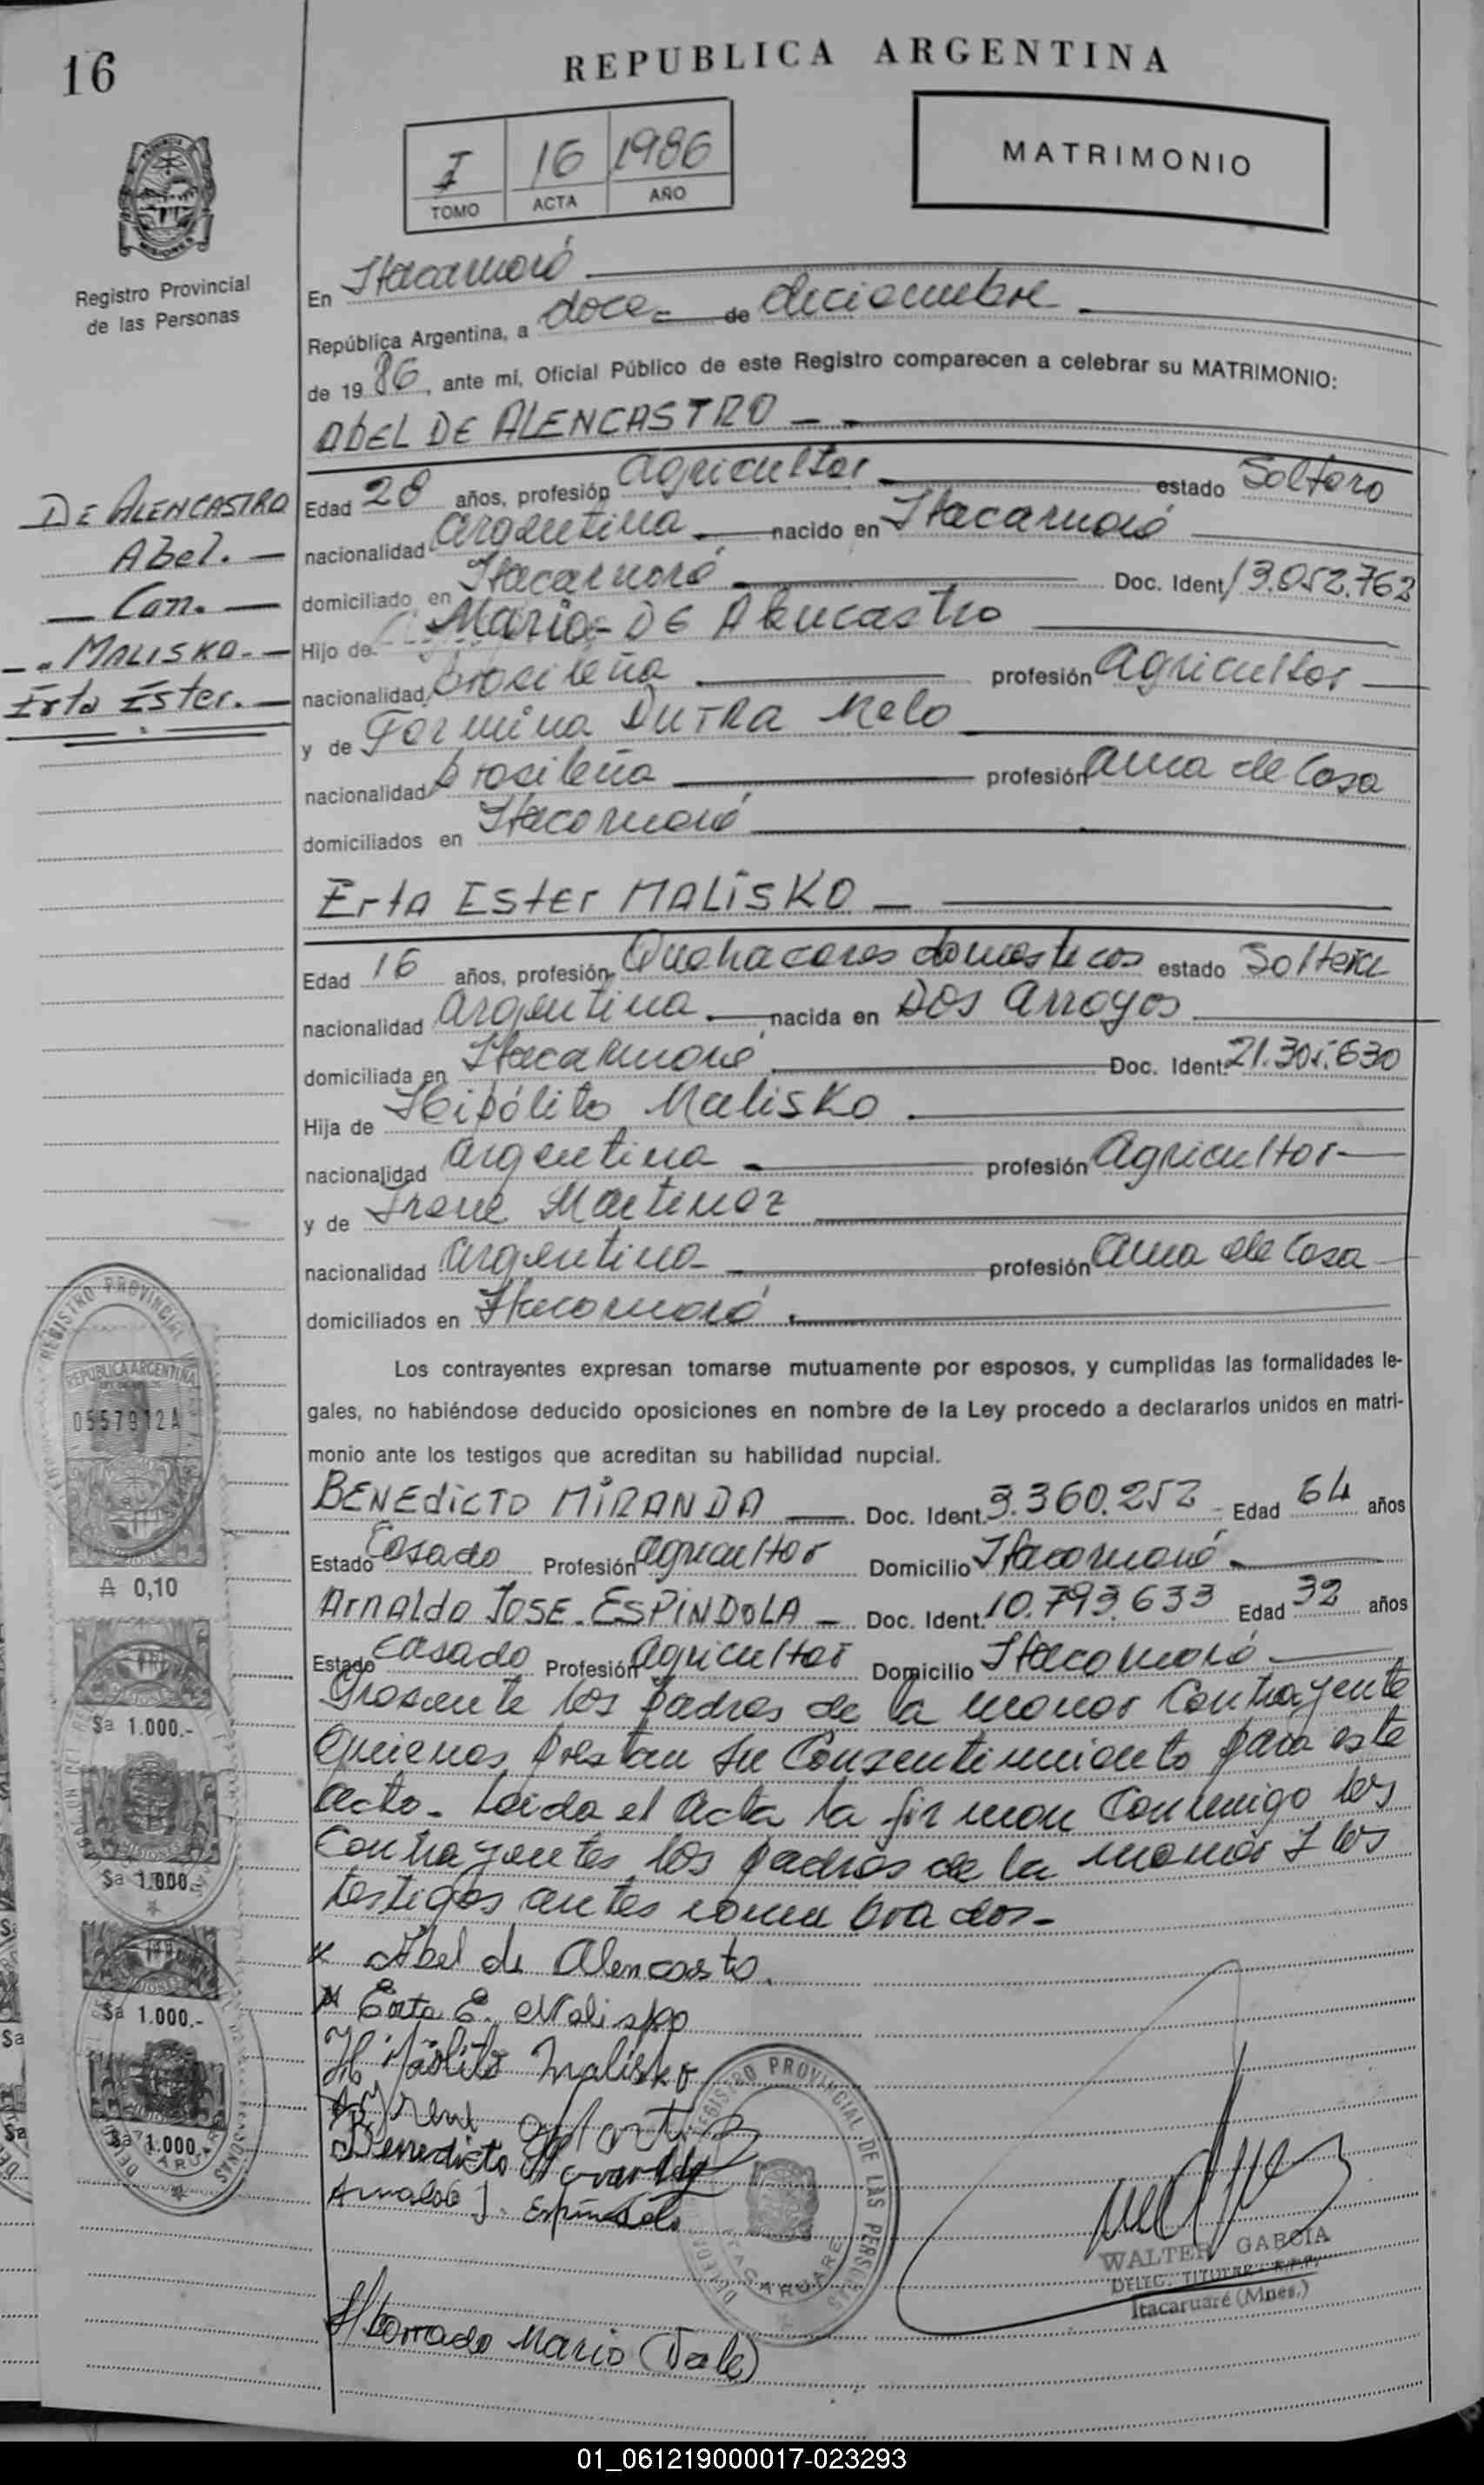 16
REPUBLICA ARGENTINA
I 16 1986
TOMO ACTA AÑO
MATRIMONIO
MISIONES
Registro Provincial
de las Personas
En Itacaruaré
República Argentina, a doce de diciembre
de 1986, ante mí, Oficial Público de este Registro comparecen a celebrar su MATRIMONIO:
AbEL DE ALENCASTRO
DE ALENCASTRO
Abel.
Con.
MALISKO.
Erta Ester.
Edad 28 años, profesión agricultor estado Soltero
nacionalidad argentina nacido en Itacaruaré
domiciliado en Itacaruaré Doc. Ident 13.052.762
Hijo de Mario DE Alencastro
nacionalidad brasileña profesión agricultor
y de Formina DUTRA Melo
nacionalidad brasileña profesión ama de Casa
domiciliados en Itacaruaré
Erta Ester MALISKO
Edad 16 años, profesión Quehaceres domesticos estado Soltera
nacionalidad argentina nacida en DOS Arroyos
domiciliada en Itacaruaré Doc. Ident. 21.305.630
Hija de Hipólito Malisko
nacionalidad argentina profesión agricultor
y de Irene Martinez
nacionalidad argentina profesión ama de Casa
domiciliados en Itacaruaré
Los contrayentes expresan tomarse mutuamente por esposos, y cumplidas las formalidades le-
gales, no habiéndose deducido oposiciones en nombre de la Ley procedo a declararlos unidos en matri-
monio ante los testigos que acreditan su habilidad nupcial.
BENEdicTO MIRANDA Doc. Ident. 3.360.252 Edad 64 años
Estado Casado Profesión agricultor Domicilio Itacaruaré
Arnaldo JOSE ESPINDOLA Doc. Ident. 10.793.633 Edad 32 años
Estado Casado Profesión agricultor Domicilio Itacaruaré
Presente los padres de la menor Contrayente
Quienes prestan su Consentimiento para este
acto. Leida el acta la firman Conmigo los
Contrayentes los padres de la menor y los
testigos antes nombrados.
x Abel de Alencastro.
x Erta E. Malisko
Hipólito Malisko
Irene Martinez
Benedicto
Arnaldo J. Espindola
S/borrado Mario (Vale)
REGISTRO PROVINCIAL DE LAS PERSONAS
ITACARUARE
WALTER GARCIA
DELEC. TITULAR R.P.P.
Itacaruaré (Mnes.)
REGISTRO PROVINCIAL
REPUBLICA ARGENTINA
0557912A
A 0,10
$a 1.000.-
$a 1.000.-
$a 1.000.-
$a 1.000.-
01_061219000017-023293